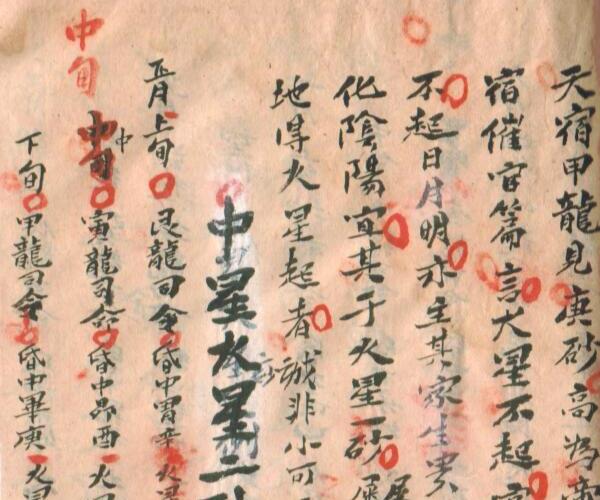 天宿甲龍見庚砂高為
宿催官篇言火星不起
不起日月明亦主其家生
化陰陽宜其于火星一砂
地得火星起者誠非小可
中星火星二
正月上旬艮龍司令昏中胃辛火星
中旬
中旬寅龍司命昏中昴酉火
中
下旬甲龍司令昏中畢庚火